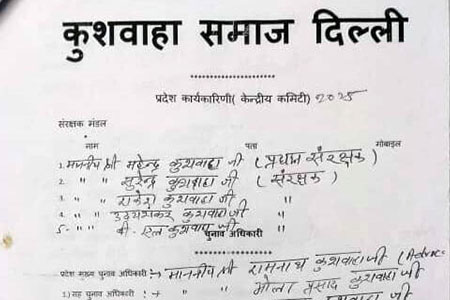 कुशवाहा समाज दिल्ली
प्रदेश कार्यकारिणी( केन्द्रीय कमिटी) 2025
संरक्षक मंडल
नाम पता मोबाइल
1. माननीय श्री महेन्द्र कुशवाहा जी (प्रधान संरक्षक)
2. " " सुरेन्द्र कुशवाहा जी (संरक्षक)
3. " " राकेश कुशवाहा जी "
4. " " उदयशंकर कुशवाहा जी "
5- " " बी. एल कुशवाहा जी "
चुनाव अधिकारी
प्रदेश मुख्य चुनाव अधिकारी :- माननीय श्री रामनाथ कुशवाहा जी (Advoc
1.) सह चुनाव अधिकारी :- " भोला प्रसाद कुशवाहा जी
कुशवाहा जी